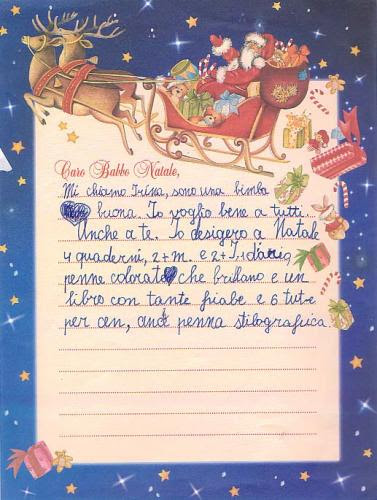 Caro Babbo Natale,
Mi chiamo Irina, sono una bimba
buona. Io voglio bene a tutti.
Anche a te. Io desigero a Natale
4 quaderni, 2+m. e 2+I+diario
penne colorate che brillano e un
libro con tante fiabe e 6 tut-e
per cen, anche penna stilografica